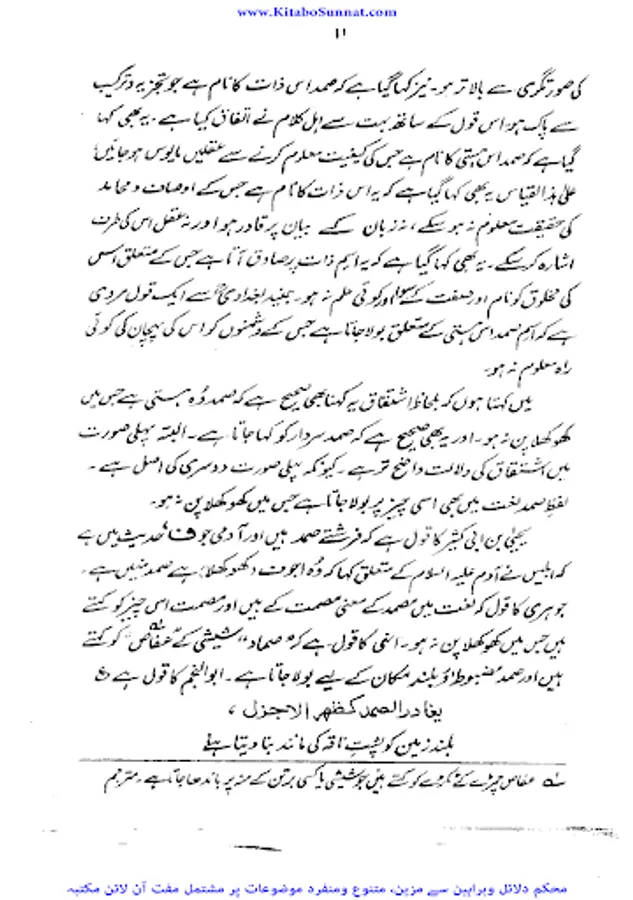 www.KitaboSunnat.com
۱۱
کی صورتگری سے بالاتر ہو۔ نیز کہا گیا ہے کہ صمد اس ذات کا نام ہے جو تجزیہ و ترکیب
سے پاک ہو، اس قول کے ساتھ بہت سے اہل کلام نے اتفاق کیا ہے۔ یہ بھی کہا
گیا ہے کہ صمد اس ہستی کا نام ہے جس کی کیفیت معلوم کرنے سے عقلیں مایوس ہو جائیں
علیٰ ہذا القیاس یہ بھی کہا گیا ہے کہ یہ اس ذات کا نام ہے جس کے اوصاف و محامد
کی حقیقت معلوم نہ ہو سکے، نہ زبان کے بیان پر قادر ہو اور نہ عقل اس کی طرف
اشارہ کر سکے۔ یہ بھی کہا گیا ہے کہ یہ اسم ذات پر صادق آتا ہے جس کے متعلق اس
کی مخلوق کو نام اور صفت کے سوا اور کوئی علم نہ ہو۔ جنید بغدادیؒ سے ایک قول مروی
ہے کہ اسم صمد اس ہستی کے متعلق بولا جاتا ہے جس کے دشمنوں کو اس کی پہچان کی کوئی
راہ معلوم نہ ہو۔
میں کہتا ہوں کہ بلحاظ اشتقاق یہ کہنا بھی صحیح ہے کہ صمد وُہ ہستی ہے جس میں
کھوکھلا پن نہ ہو۔ اور یہ بھی صحیح ہے کہ صمد سردار کو کہا جاتا ہے۔ البتہ پہلی صورت
میں اشتقاق کی دلالت واضح تر ہے۔ کیونکہ پہلی صورت دوسری کی اصل ہے۔
لفظِ صمد لغت میں بھی اسی چیز پر بولا جاتا ہے جس میں کھوکھلا پن نہ ہو۔
یحییٰ بن ابی کثیر کا قول ہے کہ فرشتے صمد ہیں اور آدمی جوف، حدیث میں ہے
کہ ابلیس نے آدم علیہ السلام کے متعلق کہا کہ وُہ اجوف (کھوکھلا) ہے صمد نہیں ہے۔
جوہری کا قول کہ لغت میں مصمد کے معنی مصمت کے ہیں اور مصمت اس چیز کو کہتے
ہیں جس میں کھوکھلا پن نہ ہو۔ انہی کا قول ہے کہ "صماد" شیشی کے "عفاص" کو کہتے
ہیں اور صمد مضبوط اور بلند مکان کے لیے بولا جاتا ہے۔ ابوالنجم کا قول ہے
یغادر الصمد کظھر الاجزل،
بلند زمین کو پشتِ ناقہ کی مانند بنا دیتا ہے
لہ عفاص چمڑے کے ٹکڑے کو کہتے ہیں جو شیشی یا کسی برتن کے منہ پر باندھا جاتا ہے۔ مترجم
محکم دلائل وبراہین سے مزین، متنوع ومنفرد موضوعات پر مشتمل مفت آن لائن مکتبہ